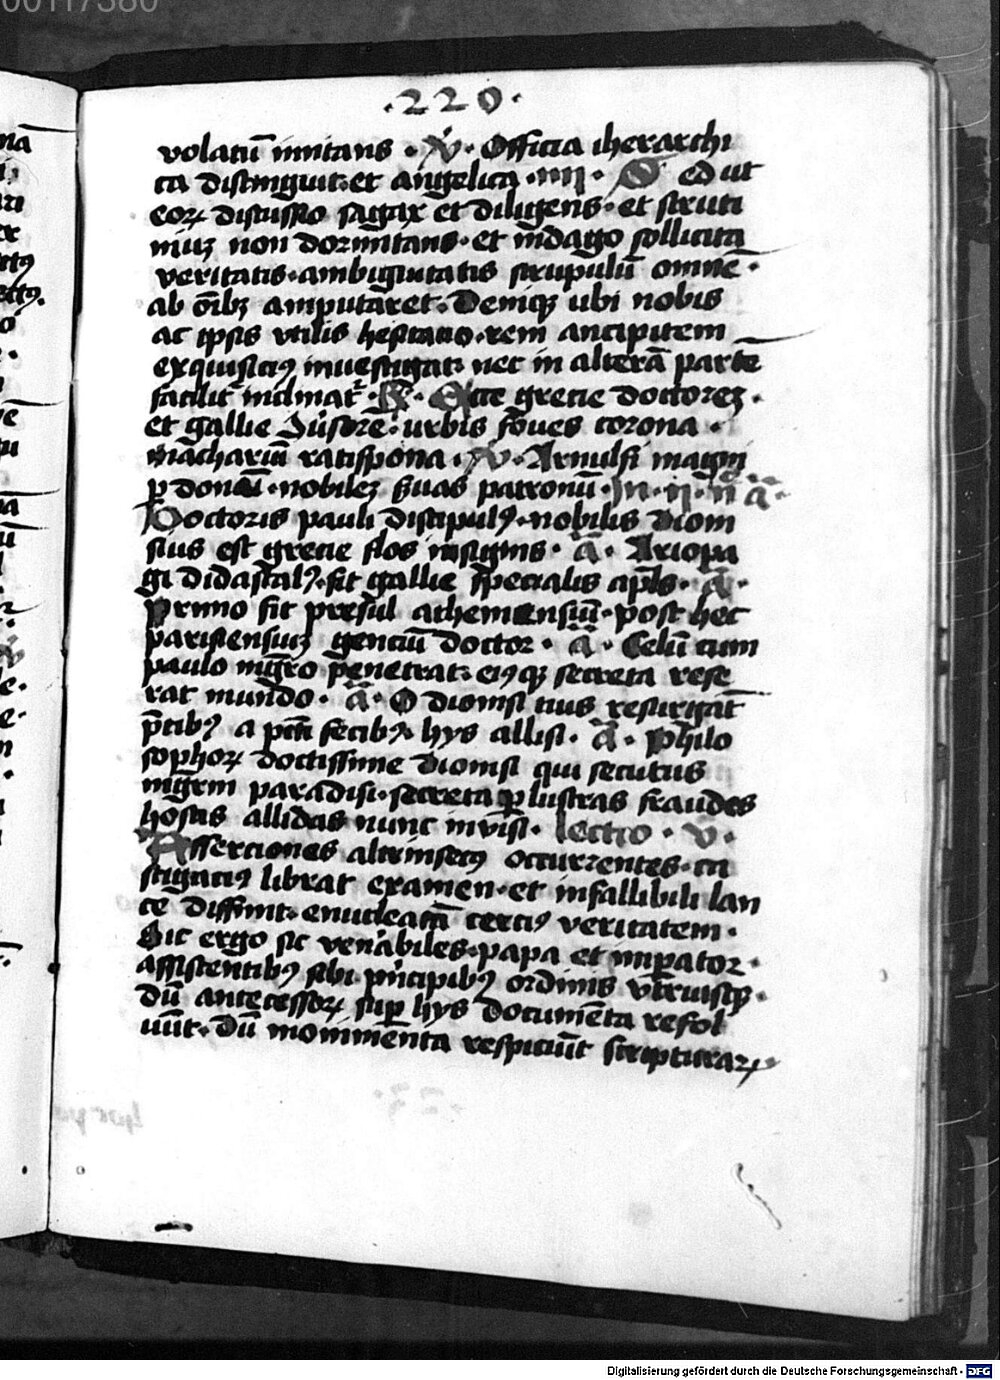 00117380
·220·
volatū imitans · V̓ · Officia iherarchi
ca distinguit·et angelica ·iiii· Sed ut
eoꝝ discussio sagax et diligens·et scruti
niuꝫ non dormitans·et īdago sollicita
veritatis·ambiguitatis scrupulū omnē·
ab oībꝫ amputaret·Deniqꝫ ubi nobis
ac ipsis utilis hesitatio·rem ancipitem
exquisicius investigat·nec in alterā partē
facilit̄ inclinat̄· R̓ · Ecce grecie doctoreꝫ·
et gallie
urbis foves corona ·
macharii ratispona · V̓ · Arnulfi magni
nobileꝫ suas patronū·In·ii·n̄ ā·
Doctoris pauli discipulꝰ·nobilis dioni
sius est grecie flos insignis· ā · Ariopa
gi didascalꝰ·fit gallie specialis apl̄s· ā ·
Primo fit presul atheniensiū·post hec
parisiensiuꝫ genciū doctor · ā · Celū cum
paulo nigro penetrat·eiꝰqꝫ secreta rese
rat mundo· ā · O dionisi tuis resurgāt
p̄cibꝰ a pctī fecibꝰ·hys allisi· ā · Philo
sophoꝝ doctissime dionisi qui secutus
paradisi·secreta ꝑlustras fraudes
hostis allidas nunc invisi· lectio · v ·
Assertiones altrinsecꝰ occurrentes·ca
stigaciꝰ librat examen·et infallibili lan
ce diffinit·enucleatā cerciꝰ veritatem·
Sic ergo sic venābiles·papa et imꝑator·
assistentibꝰ sibi p̄ncipibꝰ ordinis utriusqꝫ·
dū antecessoꝝ suꝑ hys documēta resol
uūt·dū monimēta respiciūt scripturaꝝ
Digitalisierung gefördert durch die Deutsche Forschungsgemeinschaft · DFG